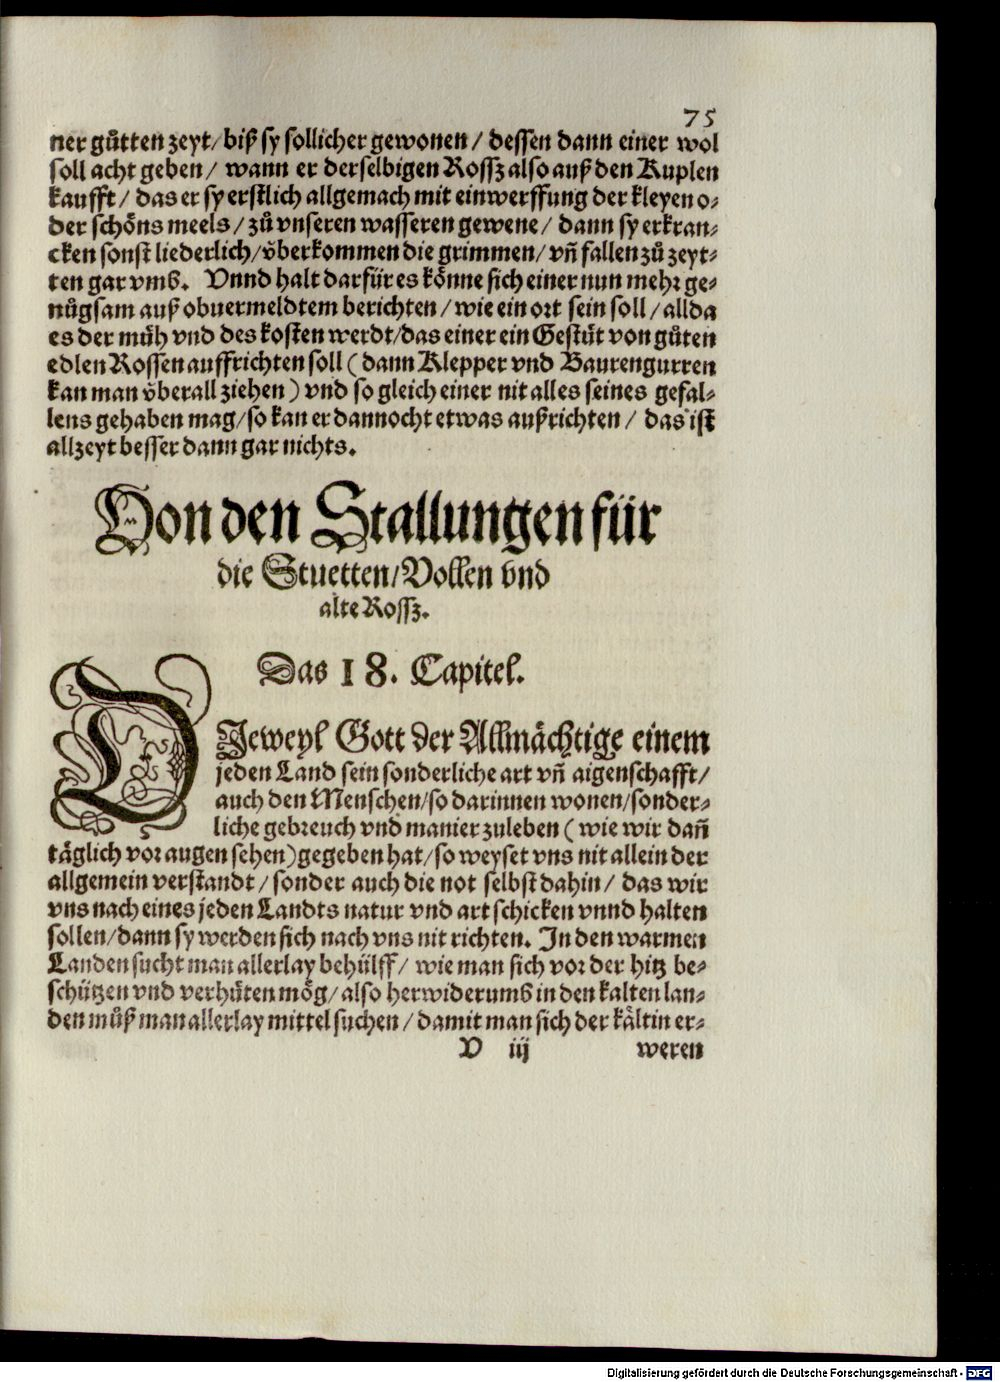 75
ner gůtten zeyt/ biß sy sollicher gewonen / dessen dann einer wol
soll acht geben / wann er derselbigen Rossz also auß den Kuplen
kaufft / das er sy erstlich allgemach mit einwerffung der kleyen o⸗
der schöns meels / zů vnseren wasseren gewene / dann sy erkran⸗
cken sonst liederlich / v̊berkommen die grimmen / vñ fallen zů zeyt⸗
ten gar vmb. Vnnd halt darfür es könne sich einer nun mehr ge⸗
nůgsam auß obuermeldtem berichten / wie ein ort sein soll / allda
es der müh vnd des kosten werdt / das einer ein Gestüt von gůten
edlen Rossen auffrichten soll ( dann Klepper vnd Baurengurren
kan man v̊berall ziehen ) vnd so gleich einer nit alles seines gefal⸗
lens gehaben mag / so kan er dannocht etwas außrichten / das ist
allzeyt besser dann gar nichts.
Von den Stallungen für
die Stuetten / Vollen vnd
alte Rossz.
Das 18. Capitel.
DJeweyl Gott der Allmächtige einem
jeden Land sein sonderliche art vñ aigenschafft /
auch den Menschen / so darinnen wonen / sonder⸗
liche gebreuch vnd manier zuleben ( wie wir dañ
täglich vor augen sehen ) gegeben hat / so weyset vns nit allein der
allgemein verstandt / sonder auch die not selbst dahin / das wir
vns nach eines jeden Landts natur vnd art schicken vnnd halten
sollen / dann sy werden sich nach vns nit richten. In den warmen
Landen sucht man allerlay behülff / wie man sich vor der hitz be⸗
schützen vnd verhüten mög / also herwiderumb in den kalten lan⸗
den můß man allerlay mittel suchen / damit man sich der kältin er⸗
V iij weren
Digitalisierung gefördert durch die Deutsche Forschungsgemeinschaft - DFG